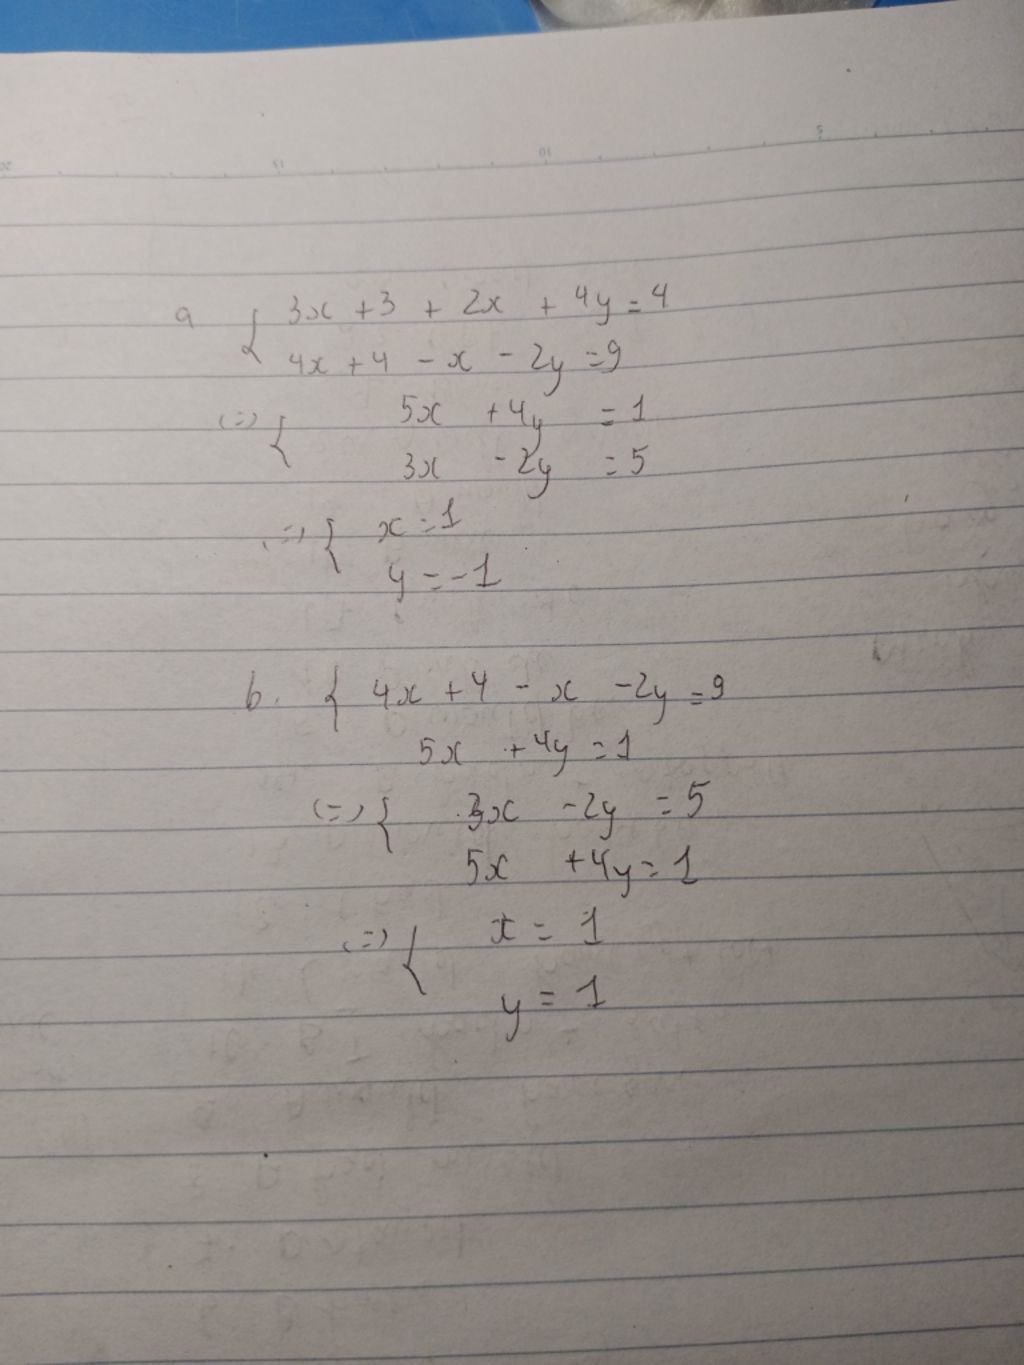 a { 3x + 3 + 2x + 4y = 4
4x + 4 - x - 2y = 9
(=) { 5x + 4y = 1
3x - 2y = 5
(=) { x = 1
y = -1
b. { 4x + 4 - x - 2y = 9
5x + 4y = 1
(=) { 3x - 2y = 5
5x + 4y = 1
(=) { x = 1
y = 1